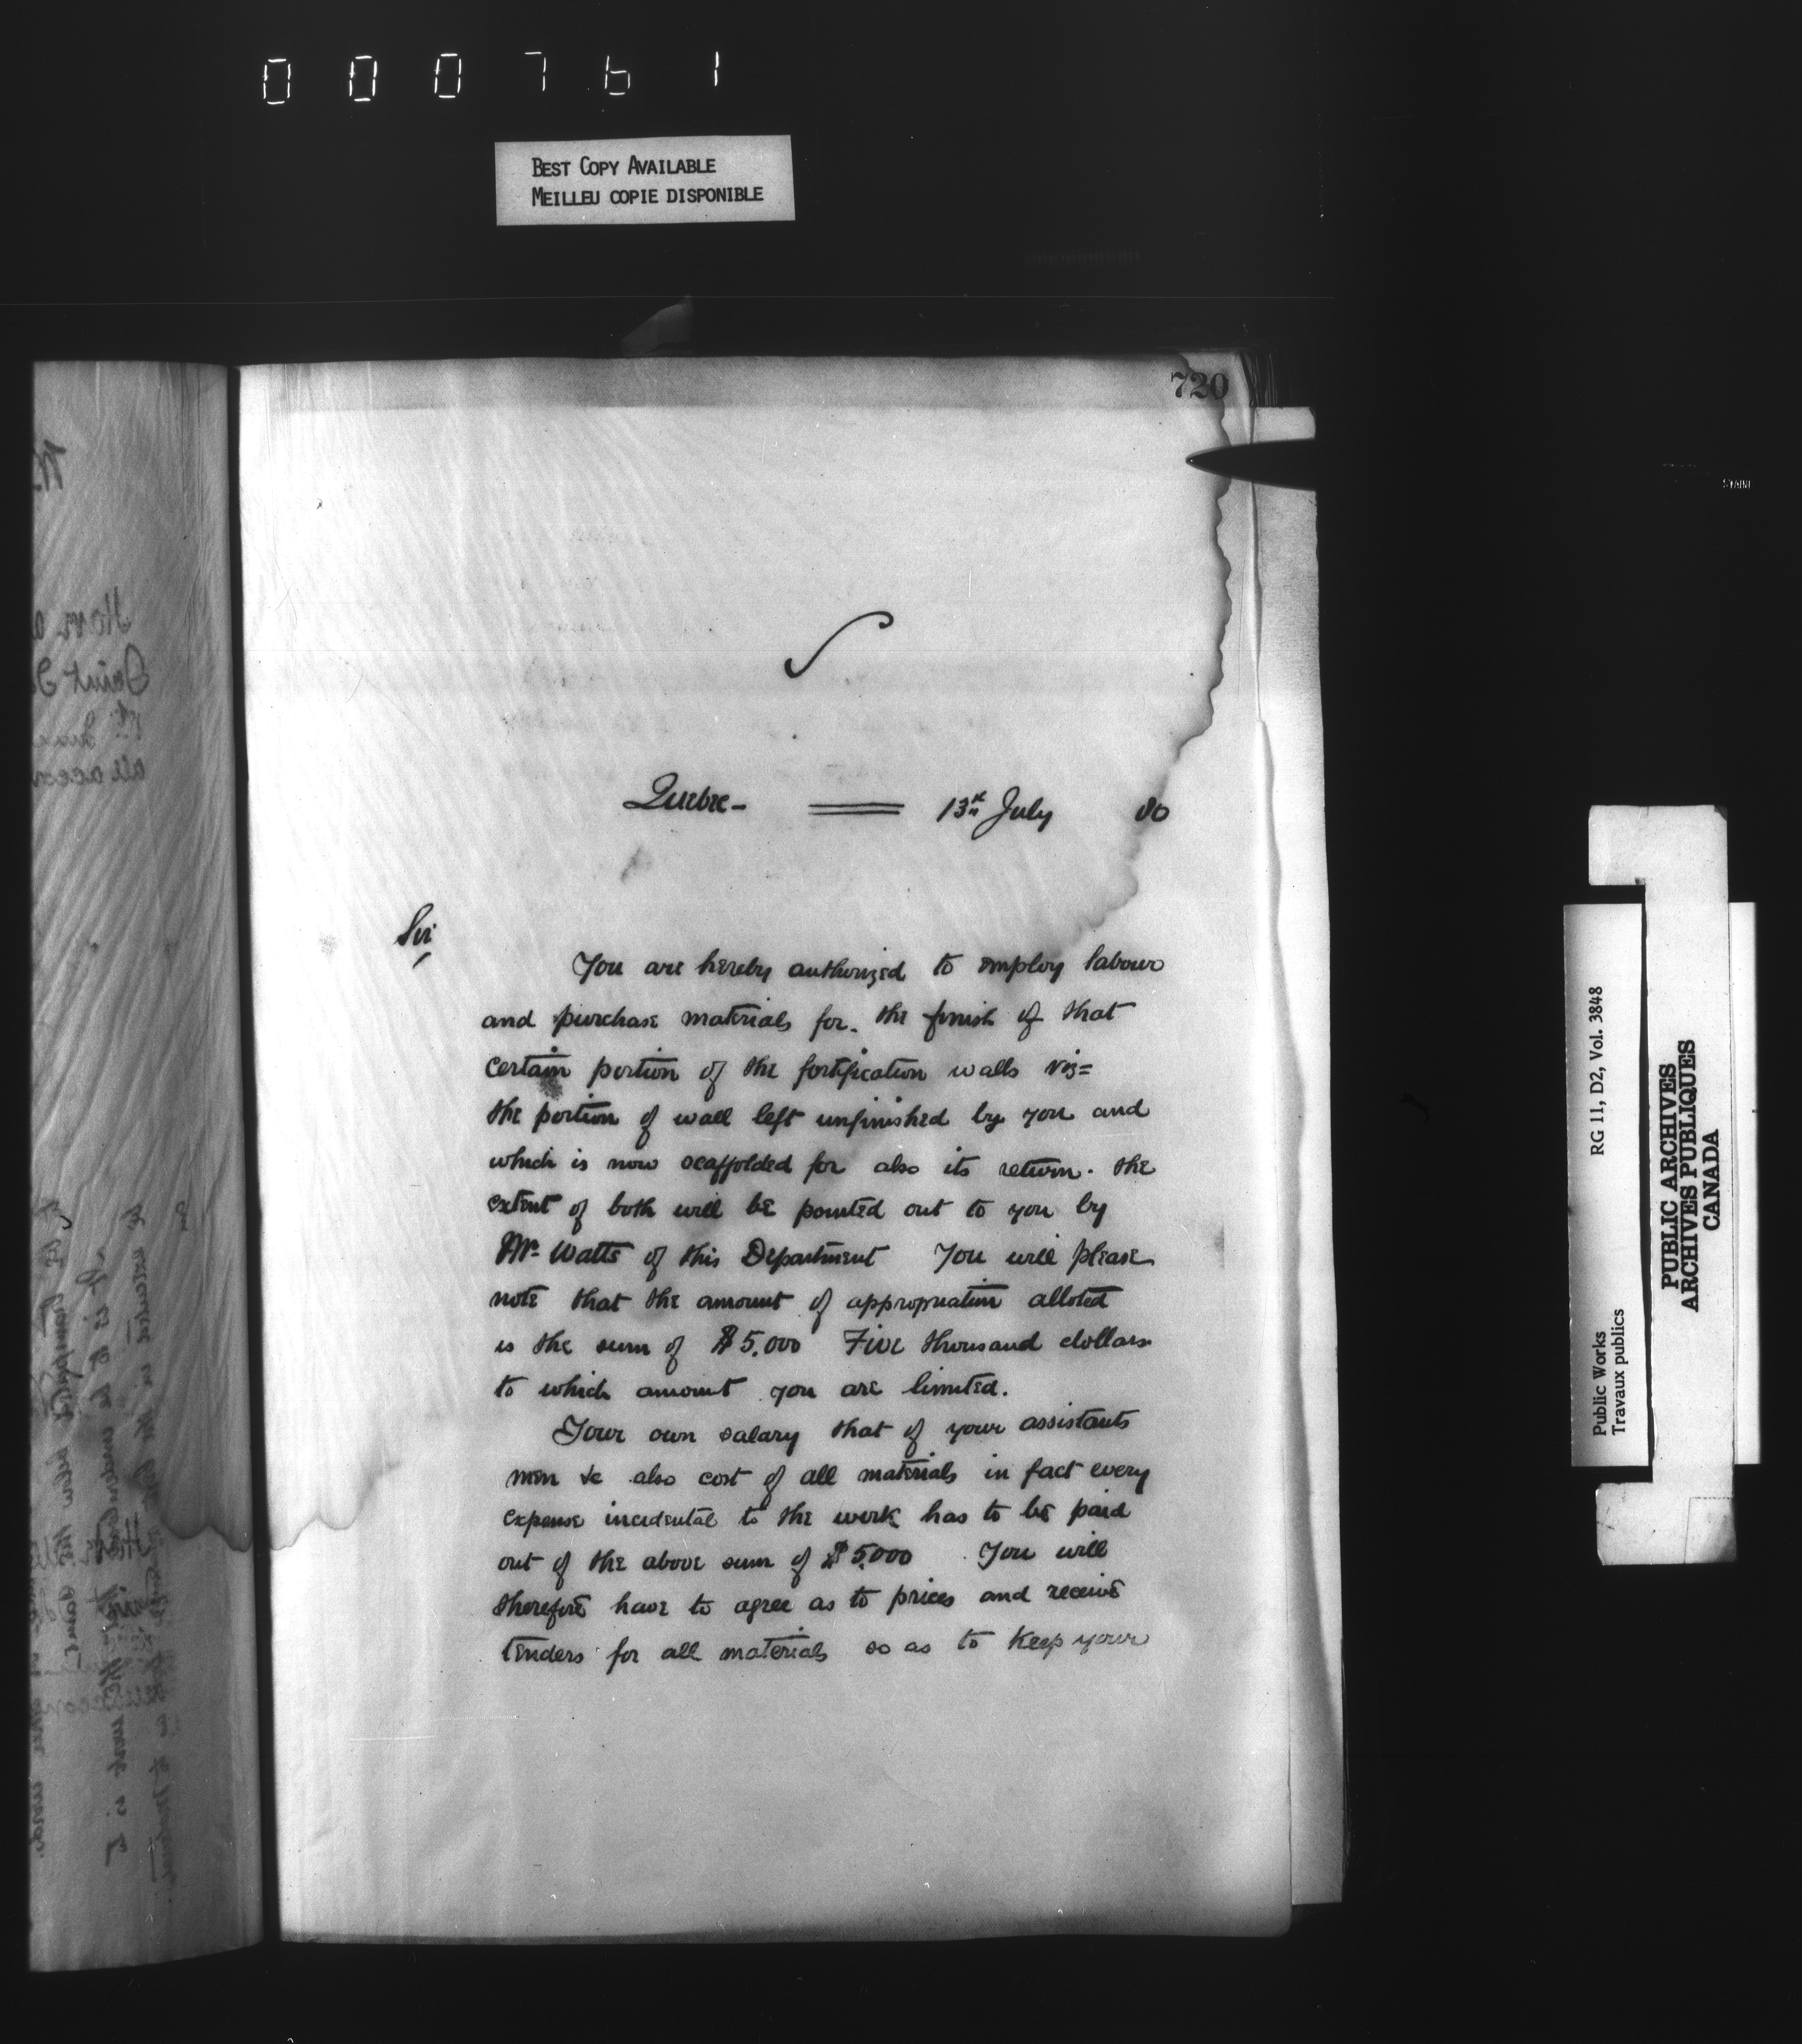 000761
BEST COPY AVAILABLE
MEILLEU COPIE DISPONIBLE
720
Quebec- 13th July 80
Sir
You are hereby authorized to employ labour
and purchase materials for the finish of that
certain portion of the fortification walls viz=
the portion of wall left unfinished by you and
which is now scaffolded for also its return. The
extent of both will be pointed out to you by
Mr. Watts of this Department You will please
note that the amount of appropriation alloted
is the sum of $5,000 Five thousand dollars
to which amount you are limited.
Your own salary that of your assistants
men &c also cost of all materials in fact every
expense incidental to the work has to be paid
out of the above sum of $5,000 You will
therefore have to agree as to prices and receive
tenders for all materials so as to keep your
RG 11, D2, Vol. 3848
Public Works
Travaux publics
PUBLIC ARCHIVES
ARCHIVES PUBLIQUES
CANADA